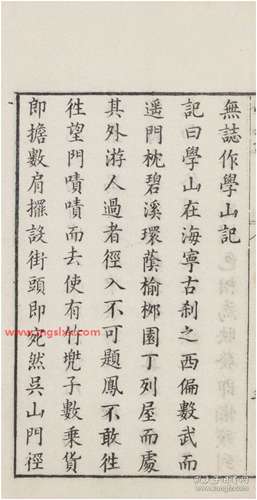 無誌作學山記
記曰學山在海寧古刹之西偏數武而
遥門枕碧溪環蔭榆栁園丁列屋而處
其外游人過者徑入不可題鳳不敢徃
徃望門嘖嘖而去使有竹兠子數乘貨
即擔數肩擺設街頭即宛然吳山門徑